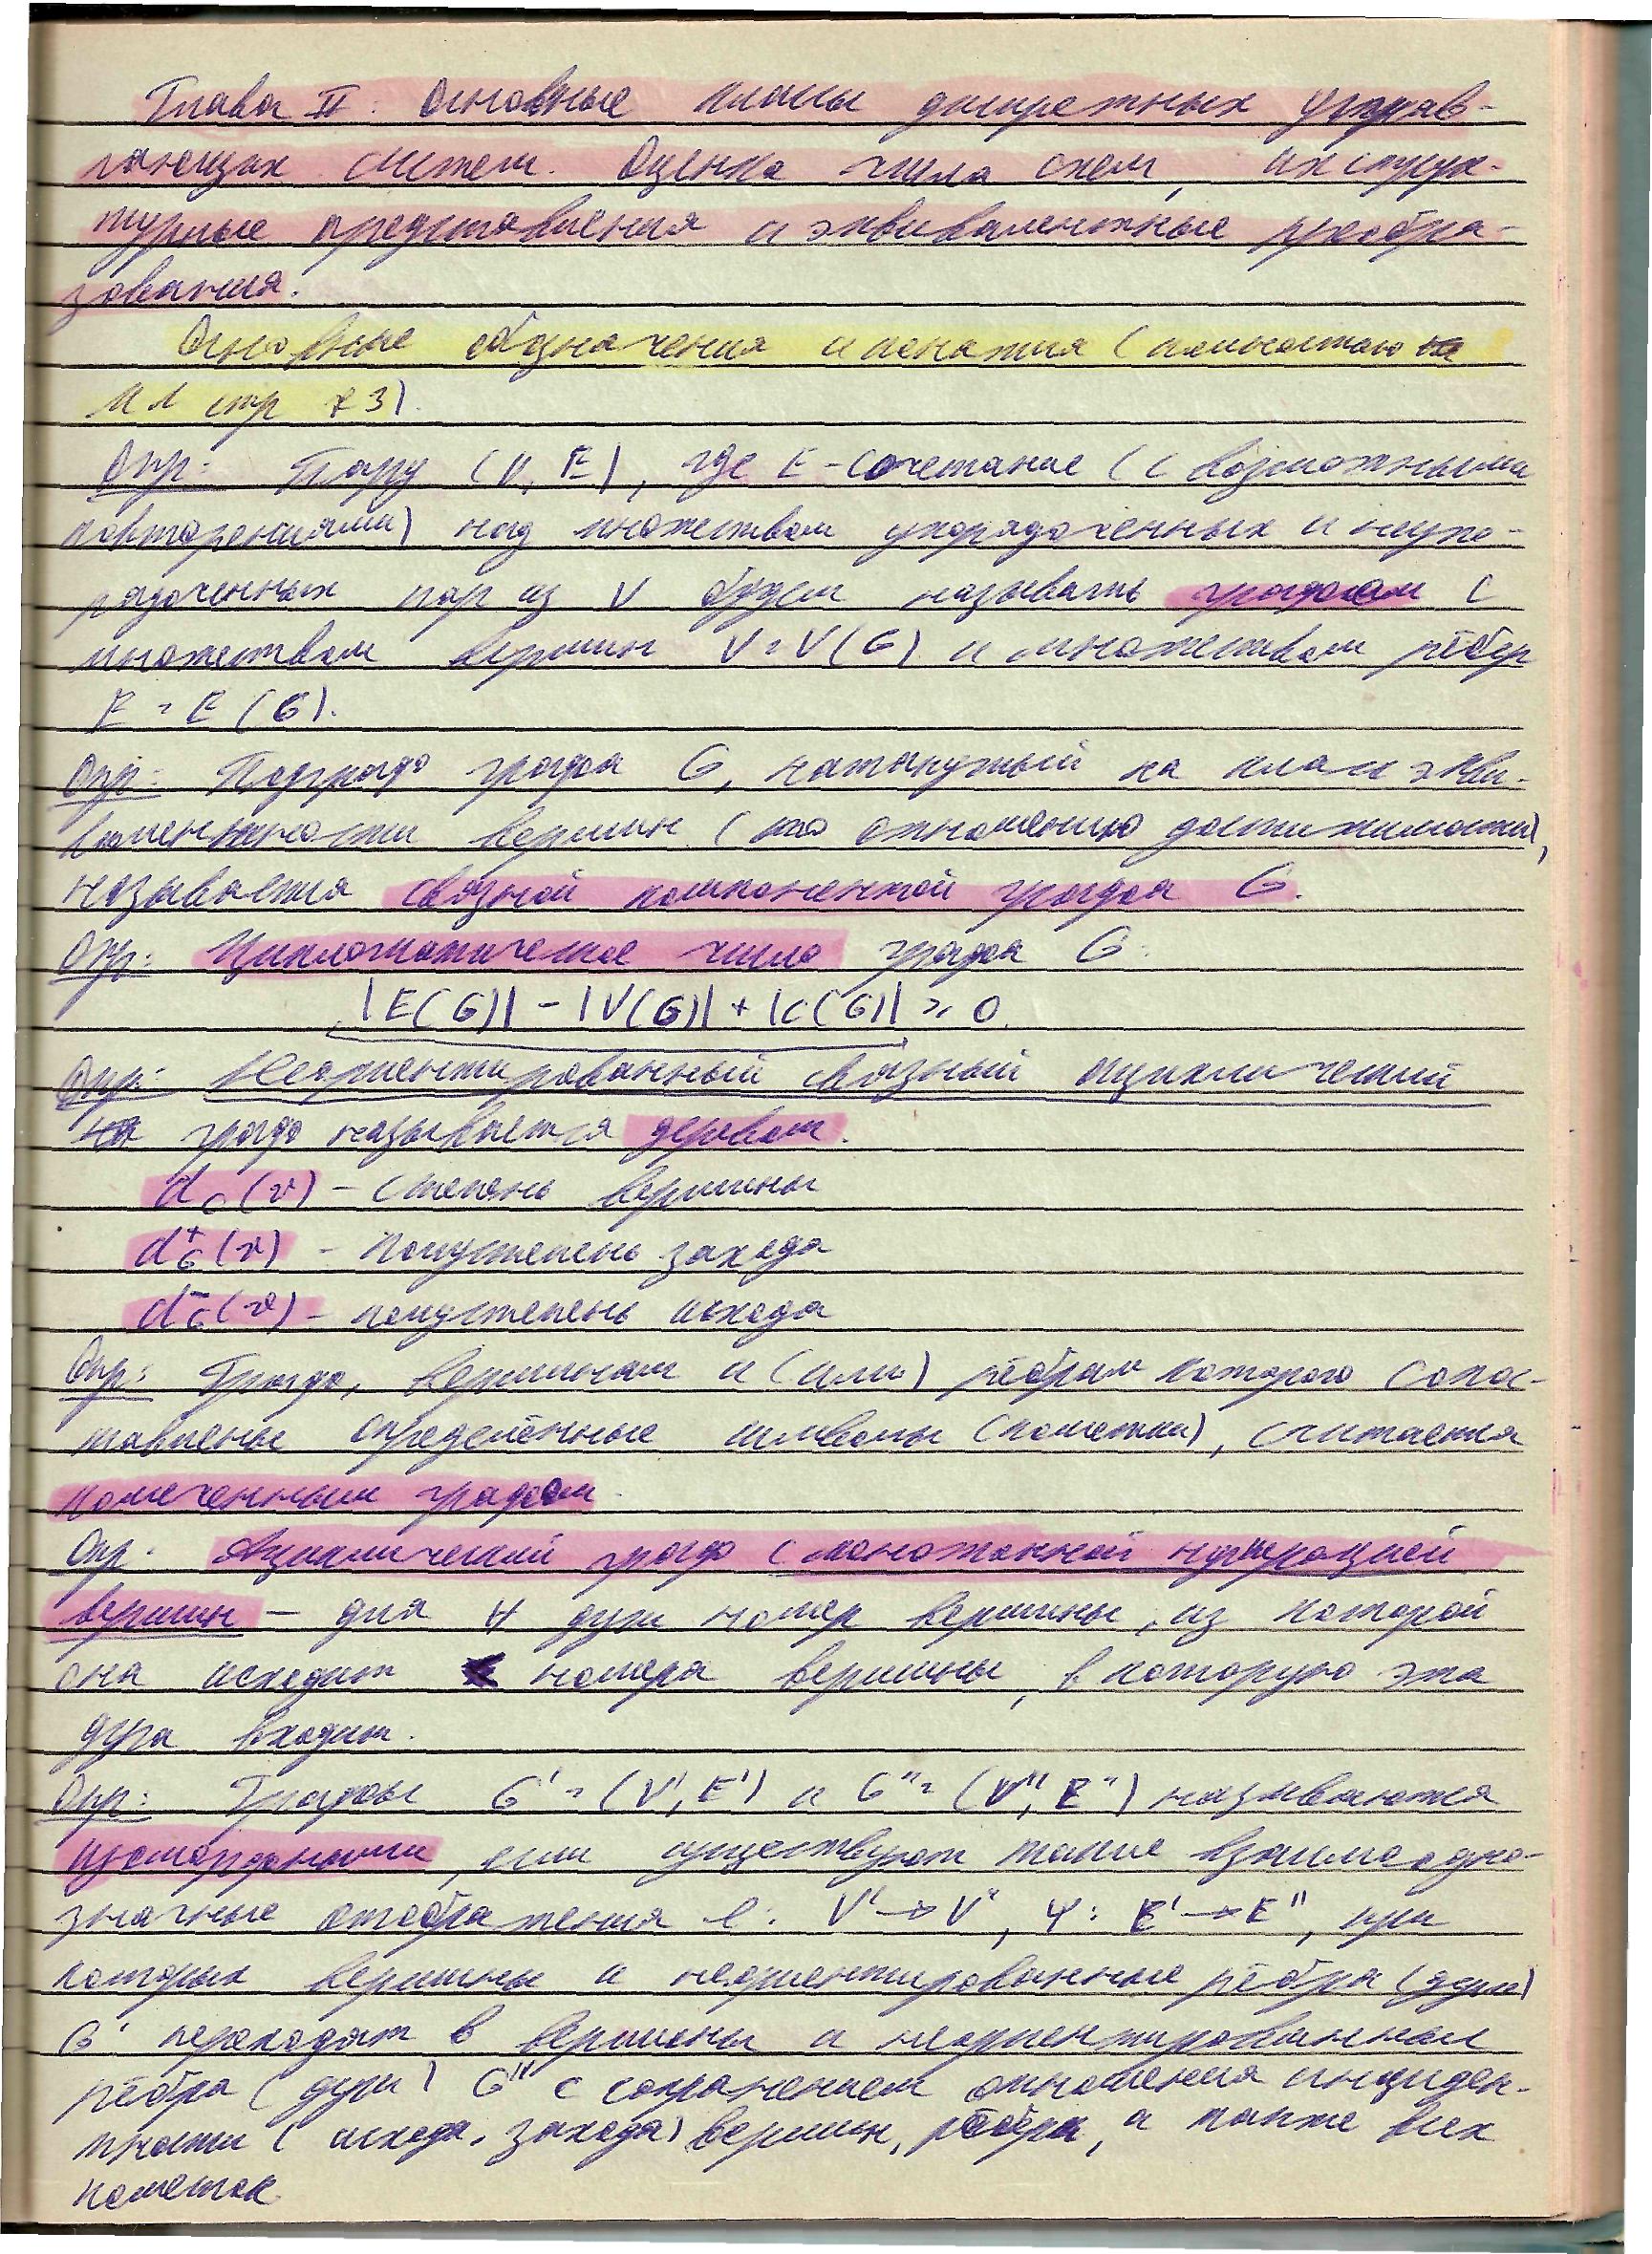 Глава II. Основные классы дискретных управ-
ляющих систем. Оценка числа схем, их струк-
турные представления и эквивалентные преобра-
зования.
Основные обозначения и понятия (полностью
стр 73).
Опр: Пару (V, E), где E - сочетание (с возможными
повторениями) над множеством упорядоченных и неупо-
рядоченных пар из V будем называть графом с
множеством вершин V = V(G) и множеством рёбер
E = E(G).
Опр: Подграф графа G, натянутый на класс экви-
валентности вершин (по отношению достижимости),
называется связной компонентой графа G.
Опр: Цикломатическое число графа G:
|E(G)| - |V(G)| + |c(G)| ≥ 0.
Опр: Неориентированный связный ациклический
граф называется деревом.
d_G(v) - степень вершины
d⁺_G(v) - полустепень захода
d⁻_G(v) - полустепень исхода
Опр: Граф, вершинам и (или) рёбрам которого сопос-
тавлены определённые символы (пометки), считается
помеченным графом.
Опр: Ациклический граф с монотонной нумерацией
вершин - для ∀ дуги номер вершины, из которой
она исходит < номера вершины, в которую эта
дуга входит.
Опр: Графы G' = (V', E') и G'' = (V'', E'') называются
изоморфными, если существуют такие взаимоодно-
значные отображения φ: V' → V'', ψ: E' → E'', при
которых вершины и неориентированные рёбра (дуги)
G' переходят в вершины и неориентированные
рёбра (дуги) G'' с сохранением отношения инциден-
тности (исхода, захода) вершин, рёбра, а также всех
пометок